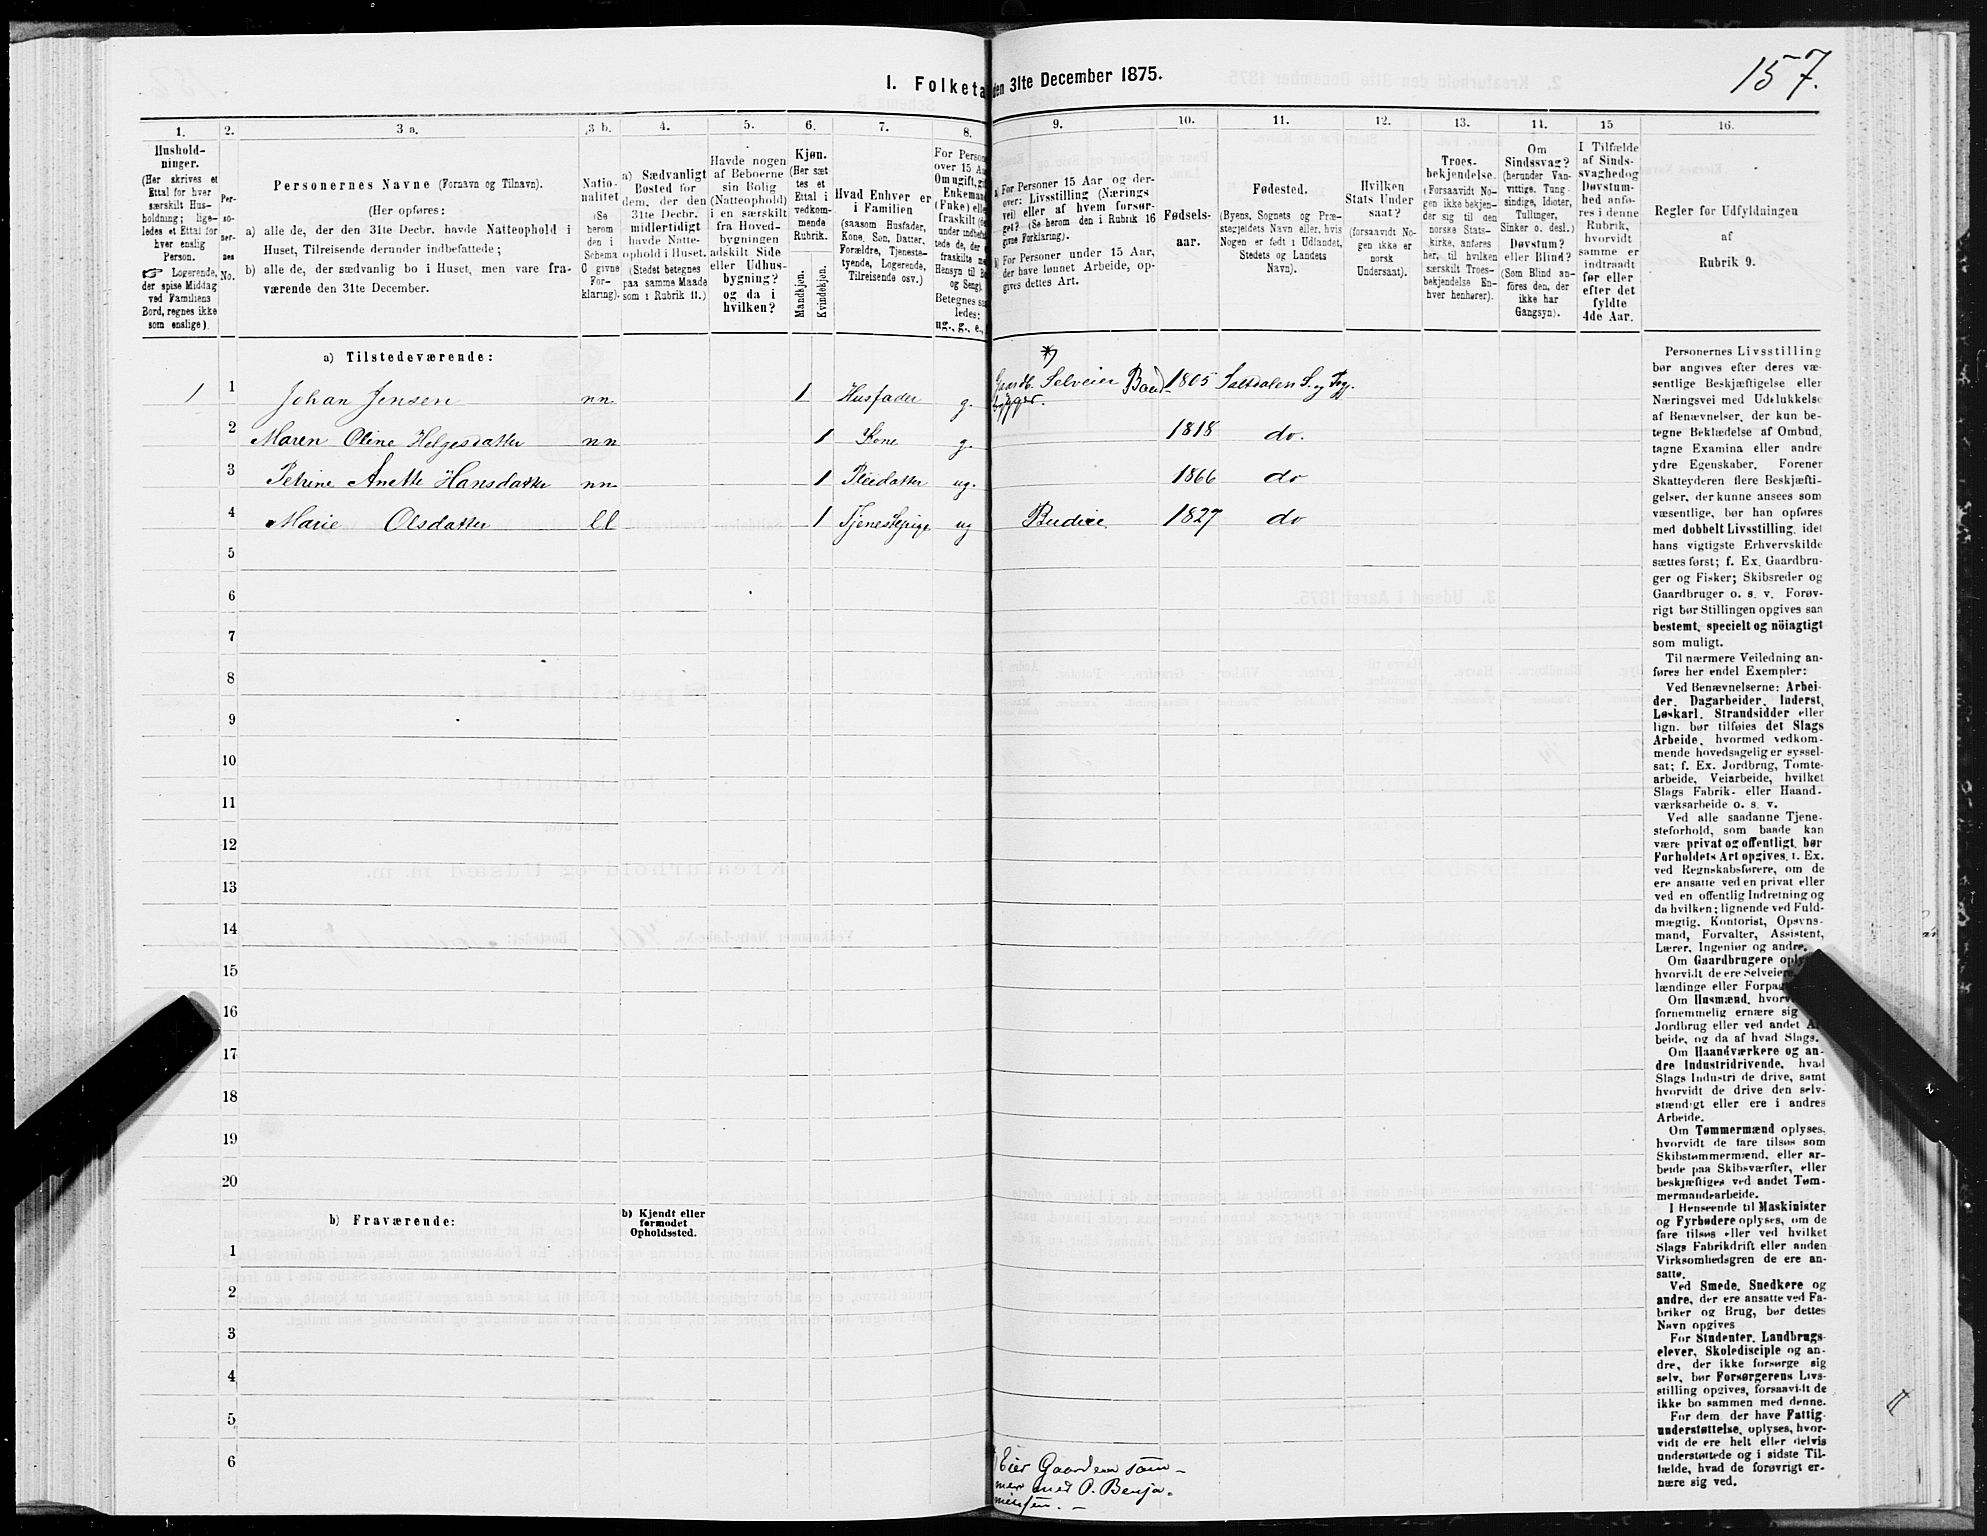 157.
I. Folketa
den 31te December 1875.
1.
2.
3 a.
3 b.
4.
5.
6.
7.
8.
9.
10.
11.
12.
13.
14.
15
16.
Hushold-
ninger.
(Her skrives et
Ettal for hver
særskilt Hus-
holdning; lige-
ledes et Ettal for
hver enslig
Person.
☞ Logerende,
der spise Middag
ved Familiens
Bord, regnes ikke
som enslige).
Per-
so-
ner-
nes
No.
Personernes Navne (Fornavn og Tilnavn).
(Her opføres:
a) alle de, der den 31te Decbr. havde Natteophold i
Huset, Tilreisende derunder indbefattede;
b) alle de, der sædvanlig bo i Huset, men vare fra-
værende den 31te December.
Natio-
nalitet
(Se
herom
den i
Schema
C givne
For-
klaring).
a) Sædvanligt
Bosted for
dem, der den
31te Decbr.
midlertidigt
havde Natte-
ophold i Huset.
(Stedet betegnes
paa samme Maade
som i Rubrik 11.)
Havde nogen
af Beboerne
sin Bolig
(Natteophold)
i en særskilt
fra Hoved-
bygningen
adskilt Side
eller Udhus-
bygning?
og da i
hvilken?
Kjøn.
(Her sæt-
tes et
Ettal i
vedkom-
mende
Rubrik.
Mandkjøn.
Kvindekjøn.
Hvad Enhver er
i Familien
(saasom Husfader,
Kone, Søn, Datter,
Forældre, Tjeneste-
tyende, Logerende,
Tilreisende osv.)
For Person
over 15 Aa
Om ugift, gi
Enkeman
(Fake) elle
fraskilt (de
under indbefat
tede de, der e
fraskilte me
Hensyn til B
og Seng).
Betegnes saa
ledes:
ug., g., e.,
a) For Personer 15 Aar og der-
over: Livsstilling (Nærings
vei) eller af hvem forsør-
get? (Se herom den i Rubrik 16
givne Forklaring).
b) For Personer under 15 Aar,
der have lønnet Arbeide, op-
gives dettes Art.
Fødsels-
aar.
Fødested.
(Byens, Sognets og Præ-
stegjeldets Navn eller, hvis
Nogen er født i Udlandet,
Stedets og Landets
Navn).
Hvilken
Stats Under
saat?
(forsaavidt No-
gen ikke er
norsk
Undersaat).
Troes-
bekjendelse.
(Forsaavidt No-
gen ikke bekjen-
der sig til den
norske Stats-
kirke, anføres
her, til hvilken
særskilt Troes-
bekjendelse En-
hver henhører).
Om
Sindssvag?
(herunder Van-
vittige, Tung-
sindige, Idioter,
Tullinger,
Sinker o. desl.)
Døvstum?
eller Blind?
(Som Blind an-
føres den, der
ikke har
Gangsyn).
I Tilfælde
af Sinds-
svaghed og
Døvstum-
hed anfø-
res i denne
Rubrik,
hvorvidt
samme er
indtraadt
før eller
efter det
fyldte
4de Aar.
Regler for Udfyldningen
af
Rubrik 9.
a) Tilstedeværende:
*)
1 1 Johan Jensen nn 1 Husfader g. Gaardb. Selveier Baad- 1805 Saltdalen S. og Pgj.
bygger.
2 Maren Oline Helgesdatter nn 1 Kone g. 1818 do.
3 Petrine Anette Hansdatter nn 1 Pleiedatter ug. 1866 do
4 Marie Olsdatter ll 1 Tjenestepige ug Budeie 1827 do
5
6
7
8
9
10
11
12
13
14
15
16
17
18
19
20
b) Fraværende:
b) Kjendt eller
formodet
Opholdssted.
1
2
3
4
5
6
Eier Gaarden sam-
men med P. Benja-
minsen. -
Personernes Livsstilling
bør angives efter deres væ-
sentlige Beskjæftigelse eller
Næringsvei med Udelukkelse
af Benævnelser, der kun be-
tegne Beklædelse af Ombud,
tagne Examina eller andre
ydre Egenskaber. Forener
Skatteyderen flere Beskjæfti-
gelser, der kunne ansees som
væsentlige, bør han opføres
med dobbelt Livsstilling, idet
hans vigtigste Erhvervskilde
sættes først; f. Ex. Gaardbru-
ger og Fisker; Skibsreder og
Gaardbruger o. s. v. Forøv-
rigt bør Stillingen opgives saa
bestemt, specielt og nöiagtigt
som muligt.
Til nærmere Veiledning an-
føres her endel Exempler:
Ved Benævnelserne: Arbei-
der, Dagarbeider, Inderst,
Løskarl, Strandsidder eller
lign. bør tilføies det Slags
Arbeide, hvormed vedkom-
mende hovedsagelig er syssel-
sat; f. Ex. Jordbrug, Tomte-
arbeide, Veiarbeide, hvilket
Slags Fabrik- eller Haand-
værksarbeide o. s. v.
Ved alle saadanne Tjene-
steforhold, som baade kan
være privat og offentligt, bør
Forholdets Art opgives, f. Ex.
ved Regnskabsførere, om de
ere ansatte ved en privat eller
ved en offentlig Indretning og
da hvilken; lignende ved Fuld-
mægtig, Kontorist, Opsyns-
mand, Forvalter, Assistent,
Lærer, Ingeniør og andre.
Om Gaardbrugere oply
hvorvidt de ere Selveiere,
lændinge eller Forpag
Om Husmænd, hvorv
fornemmelig ernære sig
Jordbrug eller ved andet A
beide, og da af hvad Slags.
Om Haandværkere og an-
dre Industridrivende, hvad
Slags Industri de drive, samt
hvorvidt de drive den selv-
stændigt eller ere i andres
Arbeide.
Om Tømmermænd oplyses,
hvorvidt de fare tilsøs som
Skibstømmermænd, eller ar-
beide paa Skibsværfter, eller
beskjæftiges ved andet Tøm-
mermandsarbeide.
I Henseende til Maskinister
og Fyrbødere oplyses, om de
fare tilsøs eller ved hvilket
Slags Fabrikdrift eller anden
Virksomhedsgren de ere an-
satte.
Ved Smede, Snedkere og
andre, der ere ansatte ved Fa-
briker og Brug, bør dettes
Navn opgives
For Studenter, Landbrugs-
elever, Skoledisciple og an-
dre, der ikke forsørge sig
selv, bør Forsørgerens Livs-
stilling opgives, forsaavidt de
ikke bo sammen med denne.
For dem, der have Fattig-
understøttelse, oplyses, hvor-
vidt de ere helt eller delvis
understøttede og i sidste Til-
fælde, hvad de forøvrigt er-
nære sig ved.